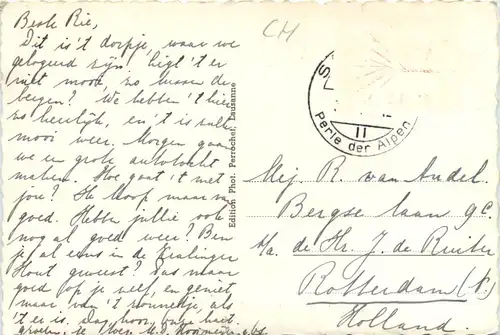 Beste Rie,
Dit is 't dorpje, waar we
gelogeerd zijn. Ligt 't er
niet mooi, zo tussen de
bergen? We hebben 't hier
zo heerlijk, en 't is zulk
mooi weer. Morgen gaan
we een grote autotocht
maken. Hoe gaat 't met
jou? Ik hoop maar
goed. Hebben jullie ook
nog al goed weer? Ben
je al eens in de
Hout geweest? Pas maar
goed op je zelf, en geniet
maar van 't zonnetje, als
't er is. Dag hoor,
groeten, 
CH
Perle der Alpen
II
Edition Phot. Perrochet, Lausanne
Mej. R. van Andel.
Bergse laan 9c
p/a. de Hr. J. de Ruiter
Rotterdam
Holland.